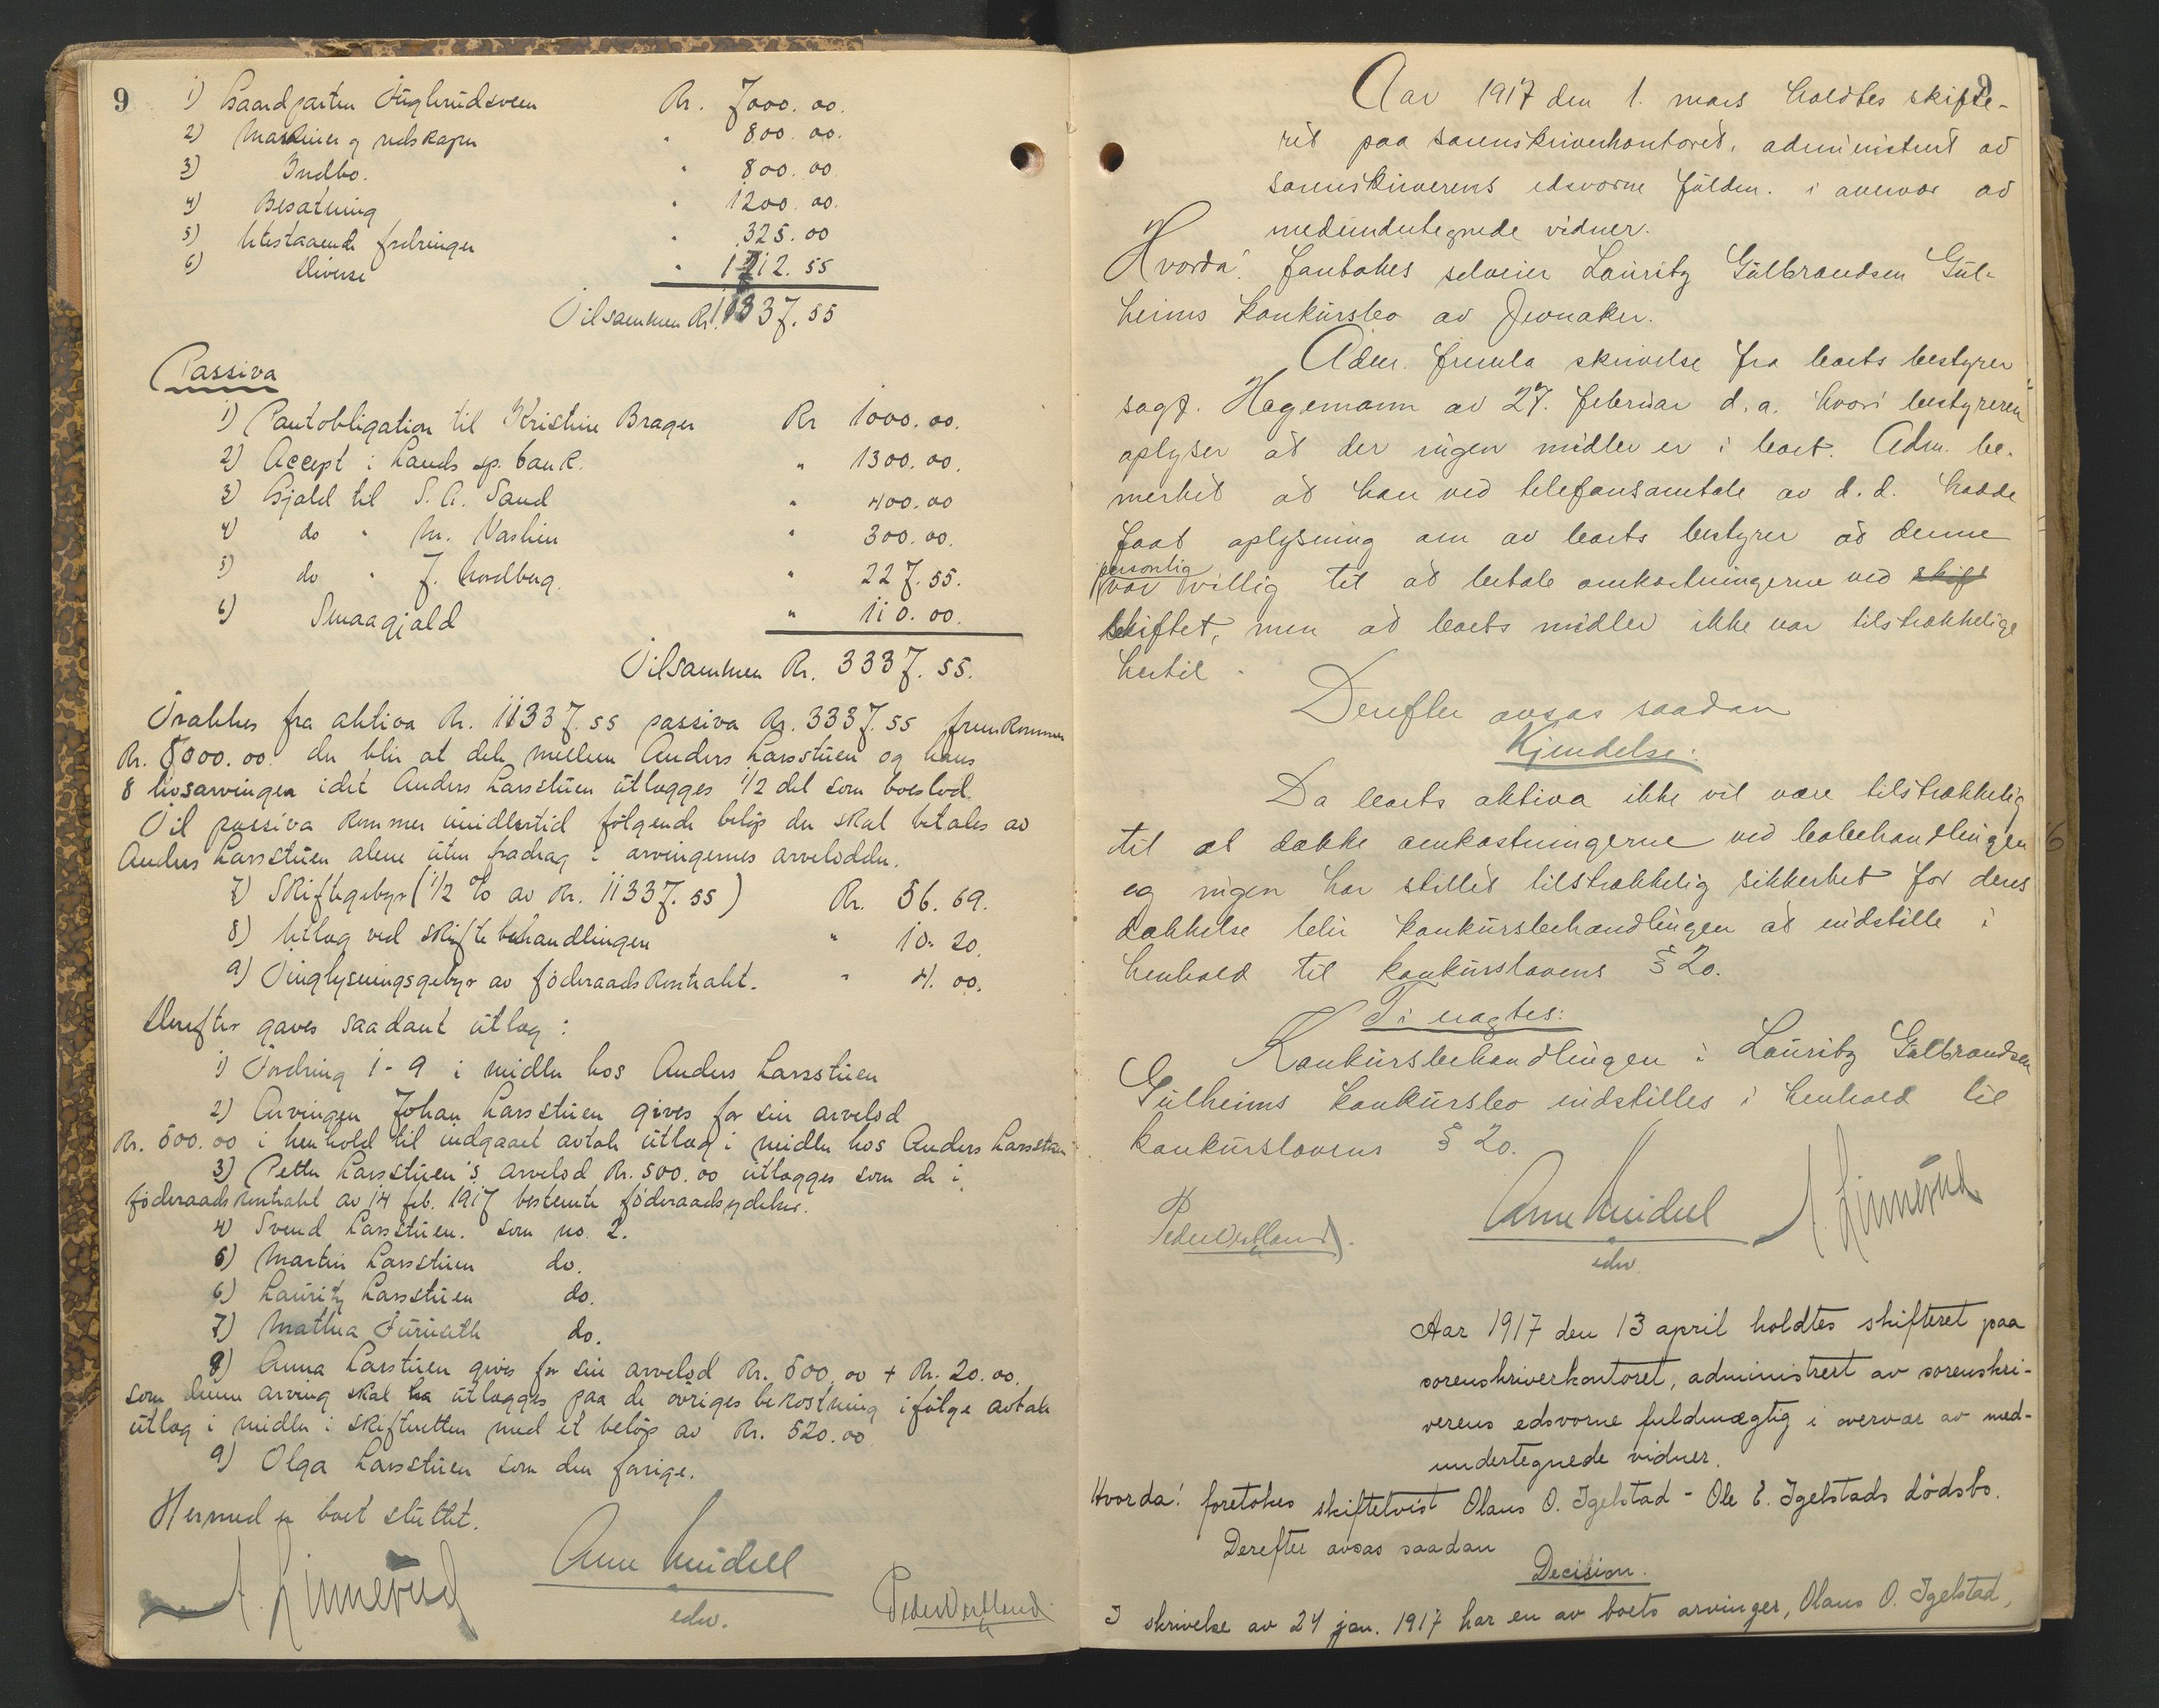 9
1) Gaardparten Fuglerudsveen Kr. 7000.00.
2) Maskiner og redskaper " 800.00.
3) Indbo. " 800.00
4) Besætning " 1200.00.
5) Utestaaende fordringer " 325.00
6) Diverse " 1212.55
Tilsammen Kr. 11337.55
Passiva
1) Pantobligation til Kristine Brager Kr 1000.00.
2) Accept i Lands sp. bank. " 1300.00.
3) Gjæld til S. A. Sand " 400.00
4) do " M. " 300.00.
5) do " J. Nordberg. " 227.55.
6) Smaagjæld " 110.00.
Tilsammen Kr. 3337.55.
Trækkes fra aktiva Kr. 11337.55 passiva Kr. 3337.55 fremkommer
Kr. 8000.00. der blir at dele mellem Anders Larsstuen og hans
8 livsarvinger idet Anders Larsstuen utlægges 1/2 del som boeslod.
Til passiva kommer imidlertid følgende beløp der skal betales av
Anders Larsstuen alene uten fradrag i arvingernes arvelodder.
7) Skiftegebyr (1/2 % av Kr. 11337.55) Kr. 56.69.
8) Utlæg ved skiftebehandlingen " 10.20.
9) Tinglysningsgebyr av föderaadskontrakt. " 4.00.
Derefter gaves saadant utlæg:
1) Fordring 1-9 i midler hos Anders Larsstuen
2) Arvingen Johan Larsstuen gives for sin arvelod
Kr. 500.00 i henhold til indgaaet avtale utlæg i midler hos Anders Larsstuen
3) Petter Larsstuen's arvelod Kr. 500.00 utlægges som de i
föderaadskontrakt av 14 feb. 1917 bestemte föderaadsydelser.
4) Svend Larsstuen. som no. 2.
5) Martin Larsstuen do.
6) Lauritz Larsstuen do.
7) Mathea Furuseth do.
8) Anna Larstuen gives for sin arvelod Kr. 500.00 + Kr. 20.00.
som denne arving skal ha utlægges paa de øvriges bekostning ifølge avtale
utlæg i midler i skifteretten med et beløp av Kr. 520.00
9) Olga Larsstuen som den forige.
Hermed er boet sluttet.
A. Linnerud Arne Meidell Peder Vestland
edsv.
9
Aar 1917 den 1. mars holdtes skifte-
ret paa sorenskriverkontoret, administrert av
sorenskriverens edsvorne fuldm. i overvær av
medundertegnede vidner.
Hvorda! foretokes selveier Lauritz Gulbrandsen Gul-
heims konkursbo av Jevnaker.
Adm. fremla skrivelse fra boets bestyrer
sagf. Hagemann av 27. februar d.a. hvori bestyreren
oplyser at der ingen midler er i boet. Adm. be-
merket at han ved telefonsamtale av d.d. hadde
faat oplysning om av boets bestyrer at denne
personlig
var villig til at betale omkostningerne ved skift
skiftet, men at boets midler ikke var tilstrækkelige
hertil.
Derefter avsas saadan
Kjendelse:
Da boets aktiva ikke vil være tilstrækkelig
til at dække omkostningerne ved bobehandlingen
og ingen har stillet tilstrækkelig sikkerhet for deres
dækkelse blir konkursbehandlingen at indstille i
henhold til konkurslovens § 20.
Ti eragtes:
Konkursbehandlingen i Lauritz Gulbrandsen
Gulheims konkursbo indstilles i henhold til
konkurslovens § 20.
Peder Vestland. Arne Meidell A. Linnerud
edsv.
Aar 1917 den 13 april holdtes skifteret paa
sorenskriverkontoret, administrert av sorenskri-
verens edsvorne fuldmægtig i overvær av med-
undertegnede vidner.
Hvorda! foretokes skiftetvist Olaus O. Igelstad - Ole E. Igelstads dödsbo.
Derefter avsas saadan
Decision.
I skrivelse av 24 jan. 1917 har en av boets arvinger, Olaus O. Igelstad,